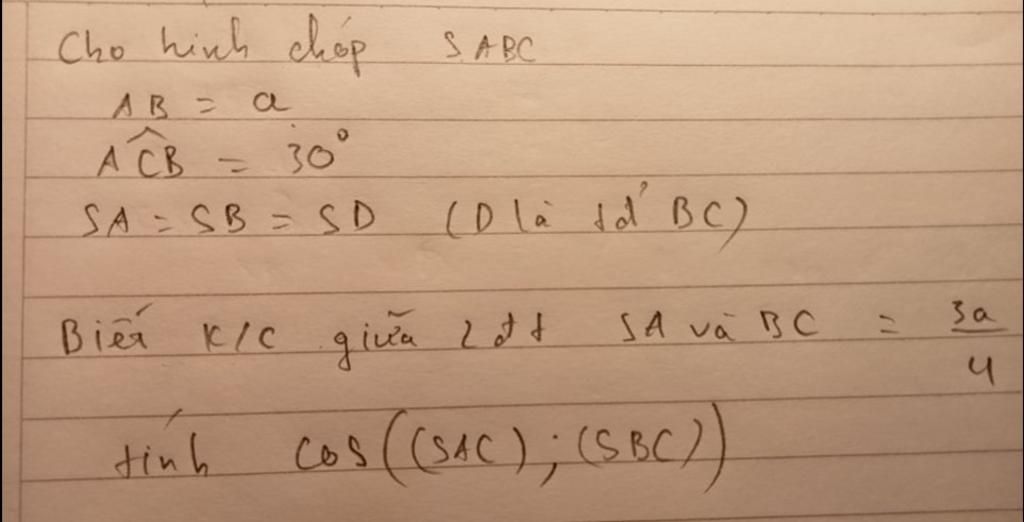 Cho hình chóp SABC
AB = a
ACB = 30°
SA = SB = SD (D là tđ BC)
Biết K/C giữa 2 đt SA và BC = 3a/4
tính cos((SAC);(SBC))